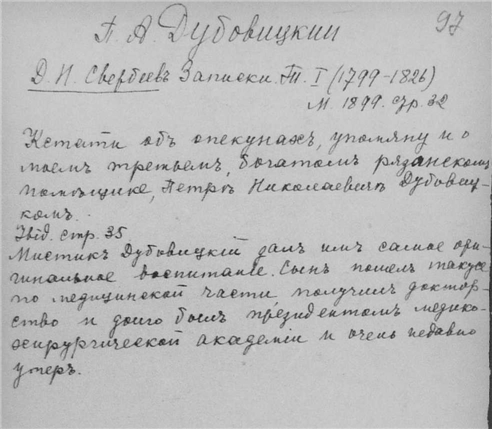 97
П. А. Дубовицкий
Д. Н. Свербеевъ Записки. Т. I (1799-1826)
М. 1899. стр. 32
Кстати объ опекунахъ, упомяну и о
моемъ третьемъ, богатомъ рязанскомъ
помѣщикѣ, Петрѣ Николаевичѣ Дубовиц-
комъ.
Ibid. стр. 35.
Мистикъ Дубовицкій далъ имъ самое ори-
гинальное воспитаніе. Сынъ пошелъ также
по медицинской части, получилъ доктор-
ство и долго былъ президентомъ медико-
хирургической академіи и очень недавно
умеръ.